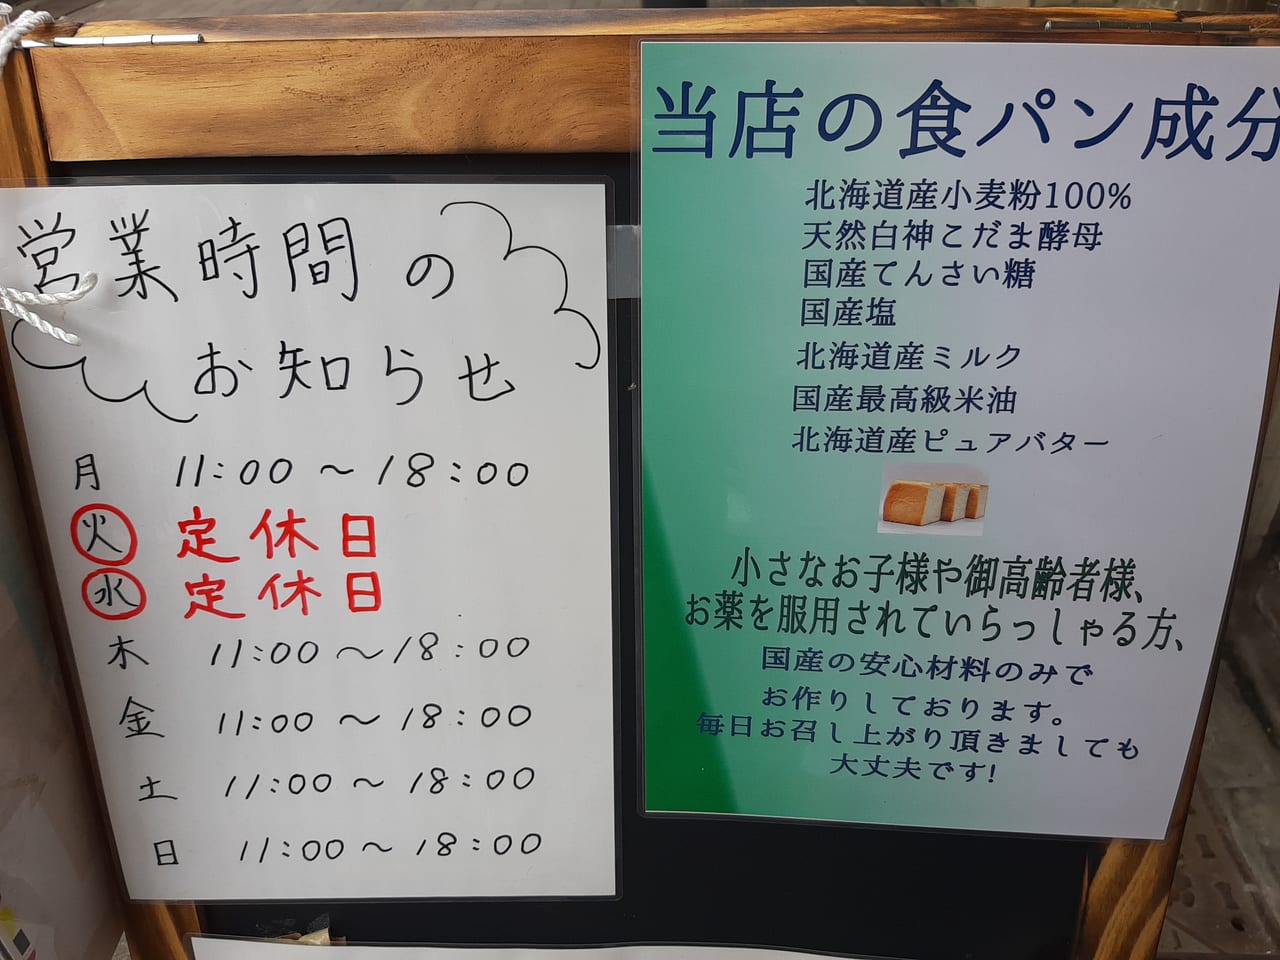 営業時間の
お知らせ
月 11:00～18:00
火 定休日
水 定休日
木 11:00～18:00
金 11:00～18:00
土 11:00～18:00
日 11:00～18:00
当店の食パン成分
北海道産小麦粉100%
天然白神こだま酵母
国産てんさい糖
国産塩
北海道産ミルク
国産最高級米油
北海道産ピュアバター
小さなお子様や御高齢者様、
お薬を服用されていらっしゃる方、
国産の安心材料のみで
お作りしております。
毎日お召し上がり頂きましても
大丈夫です!